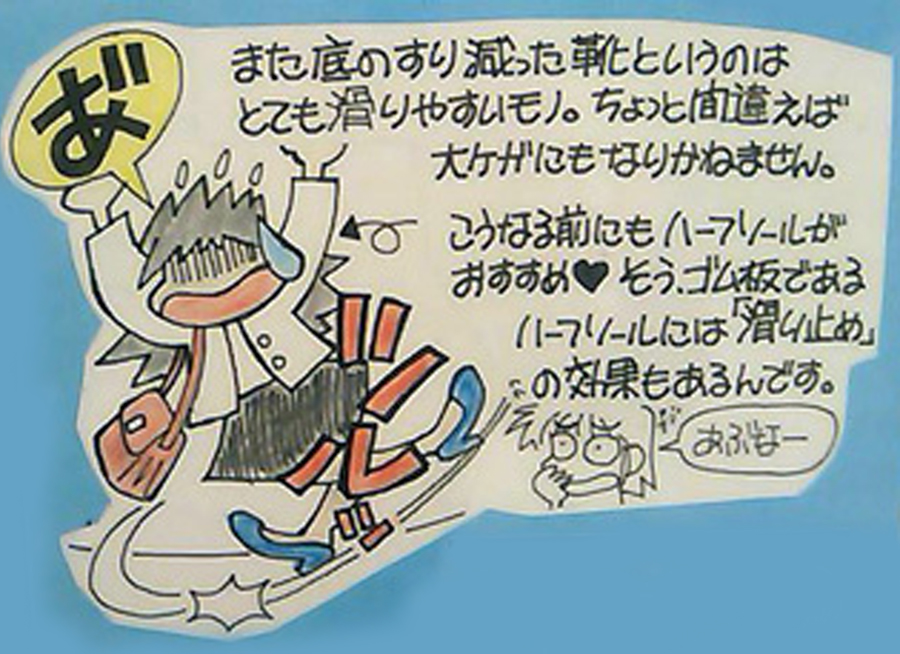 あ゛
また底のすり減った靴というのは
とても滑りやすいモノ。ちょっと間違えば
大ケガにもなりかねません。
こうなる前にもハーフソールが
おすすめ♥そう、ゴム板である
ハーフソールには「滑り止め」
の効果もあるんです。
ズルッ
あぶなー